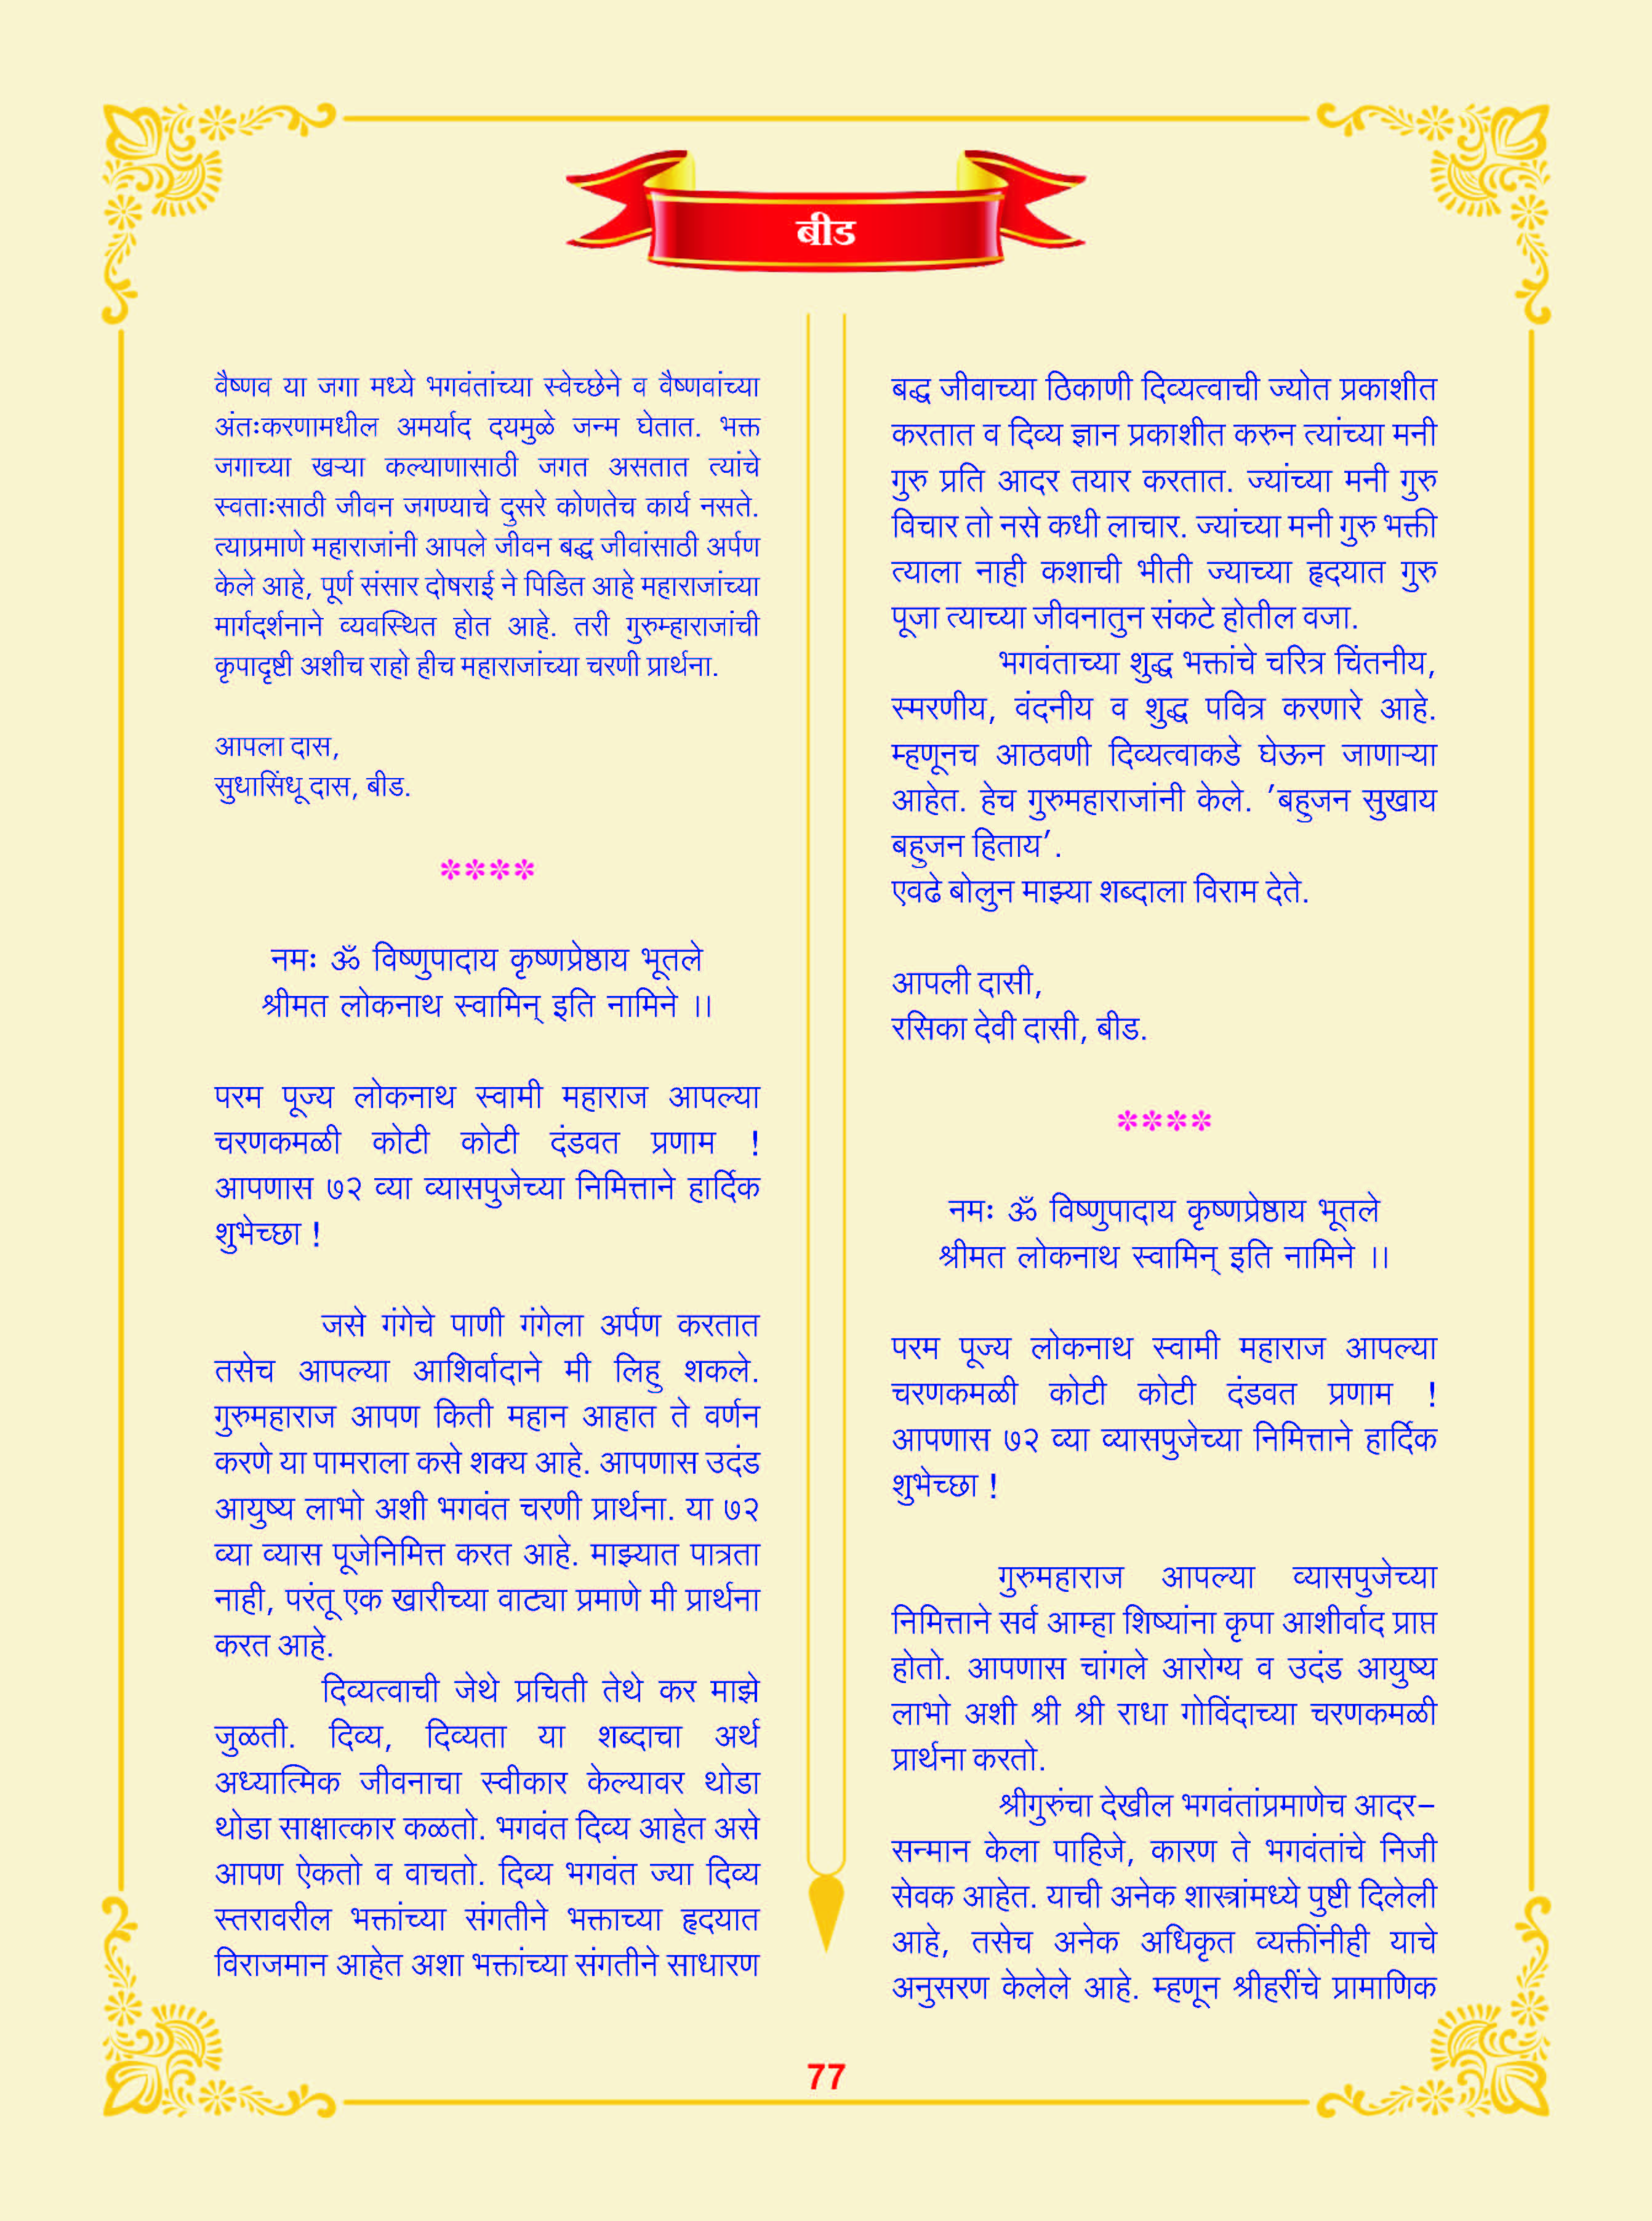 बीड
वैष्णव या जगा मध्ये भगवंतांच्या स्वेच्छेने व वैष्णवांच्या
अंतःकरणामधील अमर्याद दयमुळे जन्म घेतात. भक्त
जगाच्या खऱ्या कल्याणासाठी जगत असतात त्यांचे
स्वताःसाठी जीवन जगण्याचे दुसरे कोणतेच कार्य नसते.
त्याप्रमाणे महाराजांनी आपले जीवन बद्ध जीवांसाठी अर्पण
केले आहे, पूर्ण संसार दोषराई ने पिडित आहे महाराजांच्या
मार्गदर्शनाने व्यवस्थित होत आहे. तरी गुरुम्हाराजांची
कृपादृष्टी अशीच राहो हीच महाराजांच्या चरणी प्रार्थना.
आपला दास,
सुधासिंधू दास, बीड.
****
नमः ॐ विष्णुपादाय कृष्णप्रेष्ठाय भूतले
श्रीमत लोकनाथ स्वामिन् इति नामिने ।।
परम पूज्य लोकनाथ स्वामी महाराज आपल्या
चरणकमळी कोटी कोटी दंडवत प्रणाम !
आपणास ७२ व्या व्यासपुजेच्या निमित्ताने हार्दिक
शुभेच्छा !
जसे गंगेचे पाणी गंगेला अर्पण करतात
तसेच आपल्या आशिर्वादाने मी लिहु शकले.
गुरुमहाराज आपण किती महान आहात ते वर्णन
करणे या पामराला कसे शक्य आहे. आपणास उदंड
आयुष्य लाभो अशी भगवंत चरणी प्रार्थना. या ७२
व्या व्यास पूजेनिमित्त करत आहे. माझ्यात पात्रता
नाही, परंतू एक खारीच्या वाट्या प्रमाणे मी प्रार्थना
करत आहे.
दिव्यत्वाची जेथे प्रचिती तेथे कर माझे
जुळती. दिव्य, दिव्यता या शब्दाचा अर्थ
अध्यात्मिक जीवनाचा स्वीकार केल्यावर थोडा
थोडा साक्षात्कार कळतो. भगवंत दिव्य आहेत असे
आपण ऐकतो व वाचतो. दिव्य भगवंत ज्या दिव्य
स्तरावरील भक्तांच्या संगतीने भक्ताच्या हृदयात
विराजमान आहेत अशा भक्तांच्या संगतीने साधारण
बद्ध जीवाच्या ठिकाणी दिव्यत्वाची ज्योत प्रकाशीत
करतात व दिव्य ज्ञान प्रकाशीत करुन त्यांच्या मनी
गुरु प्रति आदर तयार करतात. ज्यांच्या मनी गुरु
विचार तो नसे कधी लाचार. ज्यांच्या मनी गुरु भक्ती
त्याला नाही कशाची भीती ज्याच्या हृदयात गुरु
पूजा त्याच्या जीवनातुन संकटे होतील वजा.
भगवंताच्या शुद्ध भक्तांचे चरित्र चिंतनीय,
स्मरणीय, वंदनीय व शुद्ध पवित्र करणारे आहे.
म्हणूनच आठवणी दिव्यत्वाकडे घेऊन जाणाऱ्या
आहेत. हेच गुरुमहाराजांनी केले. 'बहुजन सुखाय
बहुजन हिताय'.
एवढे बोलुन माझ्या शब्दाला विराम देते.
आपली दासी,
रसिका देवी दासी, बीड.
****
नमः ॐ विष्णुपादाय कृष्णप्रेष्ठाय भूतले
श्रीमत लोकनाथ स्वामिन् इति नामिने ।।
परम पूज्य लोकनाथ स्वामी महाराज आपल्या
चरणकमळी कोटी कोटी दंडवत प्रणाम !
आपणास ७२ व्या व्यासपुजेच्या निमित्ताने हार्दिक
शुभेच्छा !
गुरुमहाराज आपल्या व्यासपुजेच्या
निमित्ताने सर्व आम्हा शिष्यांना कृपा आशीर्वाद प्राप्त
होतो. आपणास चांगले आरोग्य व उदंड आयुष्य
लाभो अशी श्री श्री राधा गोविंदाच्या चरणकमळी
प्रार्थना करतो.
श्रीगुरुंचा देखील भगवंतांप्रमाणेच आदर-
सन्मान केला पाहिजे, कारण ते भगवंतांचे निजी
सेवक आहेत. याची अनेक शास्त्रांमध्ये पुष्टी दिलेली
आहे, तसेच अनेक अधिकृत व्यक्तींनीही याचे
अनुसरण केलेले आहे. म्हणून श्रीहरींचे प्रामाणिक
77